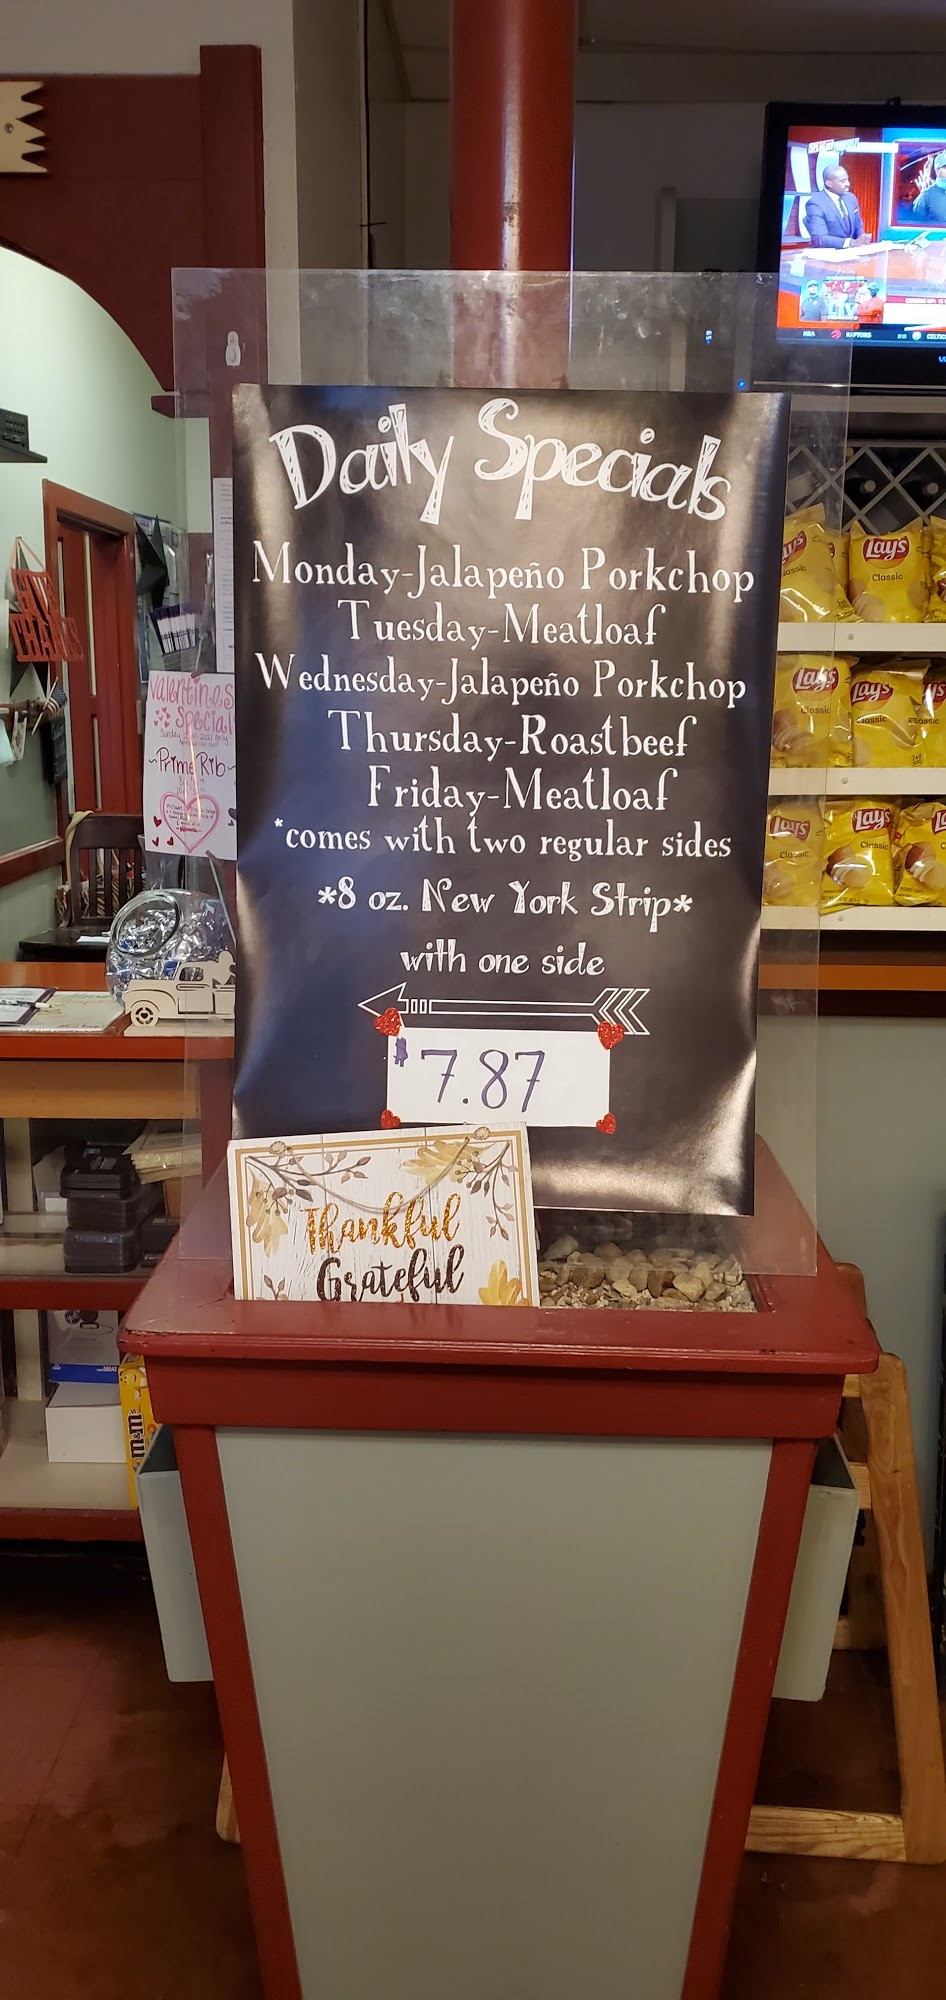 Daily Specials
Monday-Jalapeño Porkchop
Tuesday-Meatloaf
Wednesday-Jalapeño Porkchop
Thursday-Roastbeef
Friday-Meatloaf
*comes with two regular sides
*8 oz. New York Strip*
with one side
$7.87
Thankful
Grateful
Valentines
Special
Prime Rib
Lays
Classic
Lays
Classic
Lays
Classic
Lays
Classic
Lays
Classic
Lays
Classic
M&M's
NBA RAPTORS